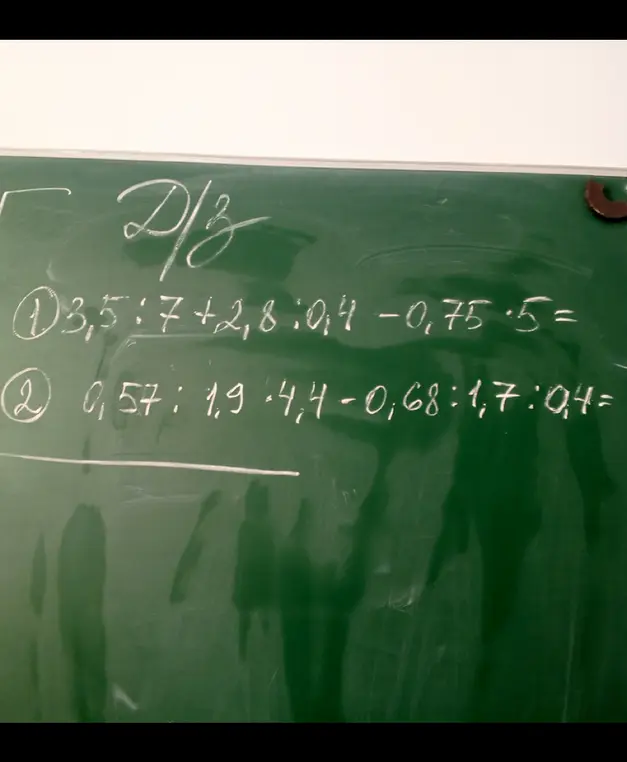 Д/з
① 3,5 : 7 + 2,8 : 0,4 - 0,75 · 5 =
② 0,57 : 1,9 · 4,4 - 0,68 : 1,7 : 0,4 =